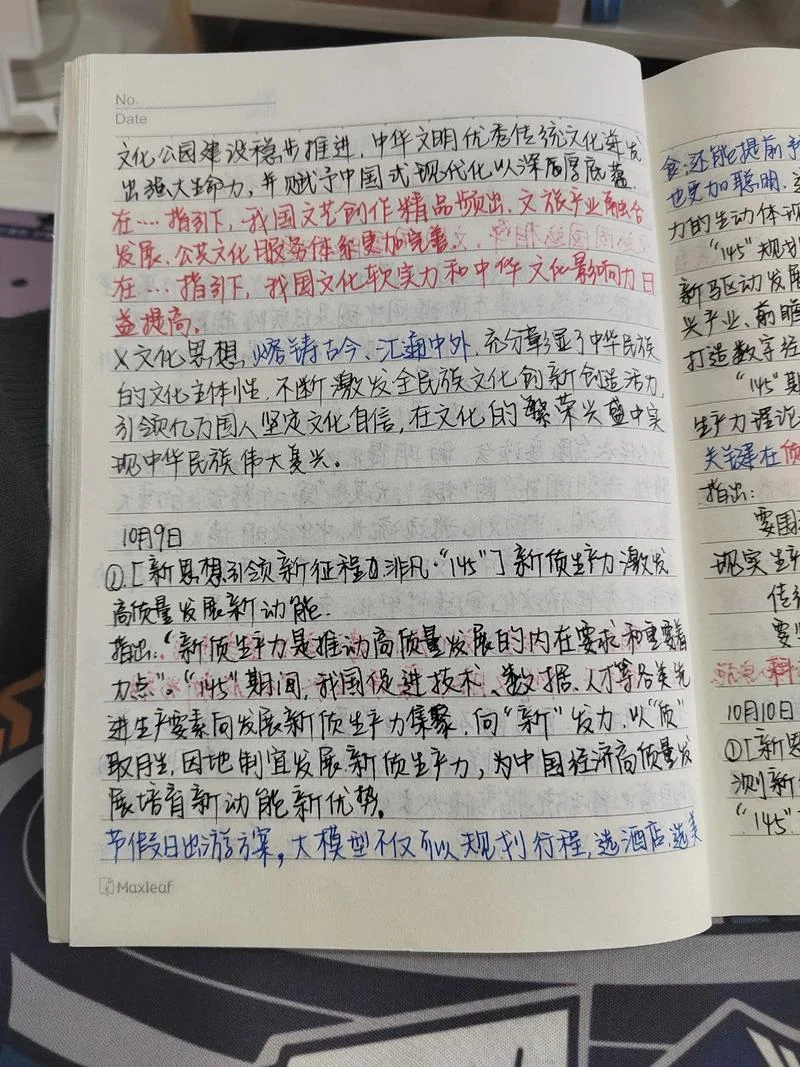 No.
Date
文化公园建设稳步推进，中华文明优秀传统文化迸发
出强大生命力，并赋予中国式现代化以深厚底蕴。
在…指引下，我国文艺创作精品频出、文旅产业融合
发展、公共文化服务体系更加完善。
在…指引下，我国文化软实力和中华文化影响力日
益提高。
X文化思想，熔铸古今、汇通中外，充分彰显了中华民族
的文化主体性，不断激发全民族文化创新创造活力，
引领亿万国人坚定文化自信，在文化的繁荣兴盛中实
现中华民族伟大复兴。
10月9日
①[新思想引领新征程·非凡“145”]新质生产力激发
高质量发展新动能.
指出：“新质生产力是推动高质量发展的内在要求和重要着
力点”。“145”期间，我国促进技术、数据、人才等各类先
进生产要素向发展新质生产力集聚，向“新”发力，以“质”
取胜，因地制宜发展新质生产力，为中国经济高质量发
展培育新动能新优势。
节假日出游方案，大模型不仅可以规划行程，选酒店，选美
Maxleaf
食，还能提前预
也更加聪明，
力的生动体现
“145”规划
新驱动发展
兴产业、前瞻
打造数字经
“145”期
生产力理论
关键在质
指出：
要围
现实生产
传统
要
科
10月10日
①[新思
测则新
“145”